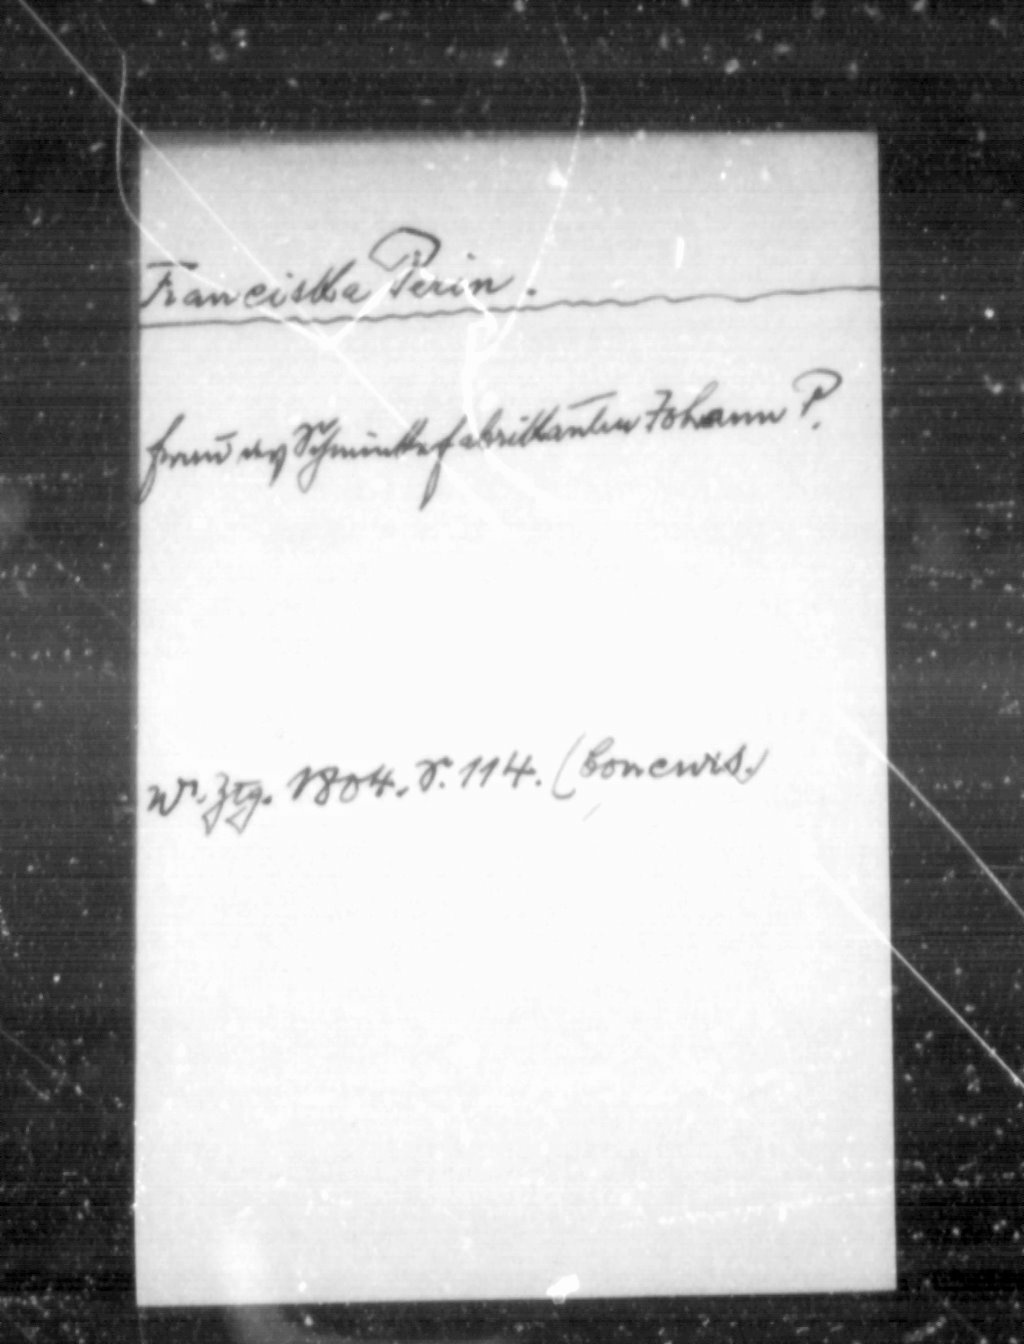 Franciska Perin.
Frau des Schminkefabrikanten Johann P.
Wr. Ztg. 1804. S. 114. (Concurs.)